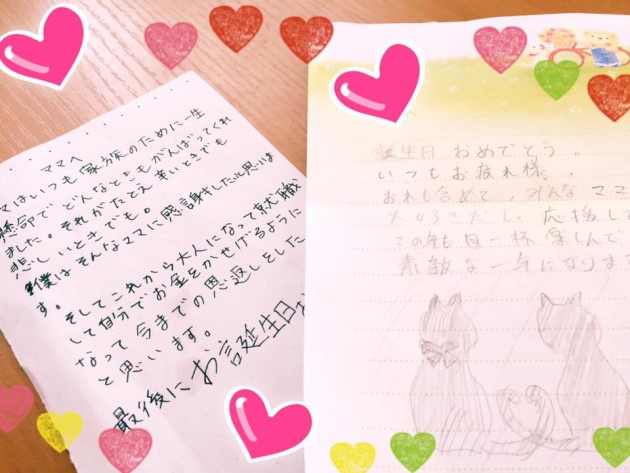 ママへ
マはいつも家族のために一生
懸命で どんなときもがんばってくれ
ました。それがたとえ辛いときでも
悲しいときでも。
僕はそんなママに感謝したい思いは
す。
そしてこれから大人になって就職
して自分でお金をかせげるように
なって今までの恩返しをした
と思います。
最後にお誕生日
へ
誕生日 おめでとう。
いつもお疲れ様、
おれも含めて、みんなママ
大好きだし、応援して
この年も目一杯楽しんで
素敵な一年になりま